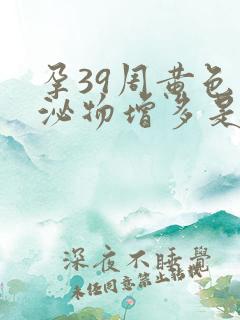 孕39周黄色
泌物增多是
深夜不睡觉
未经同意禁止转载